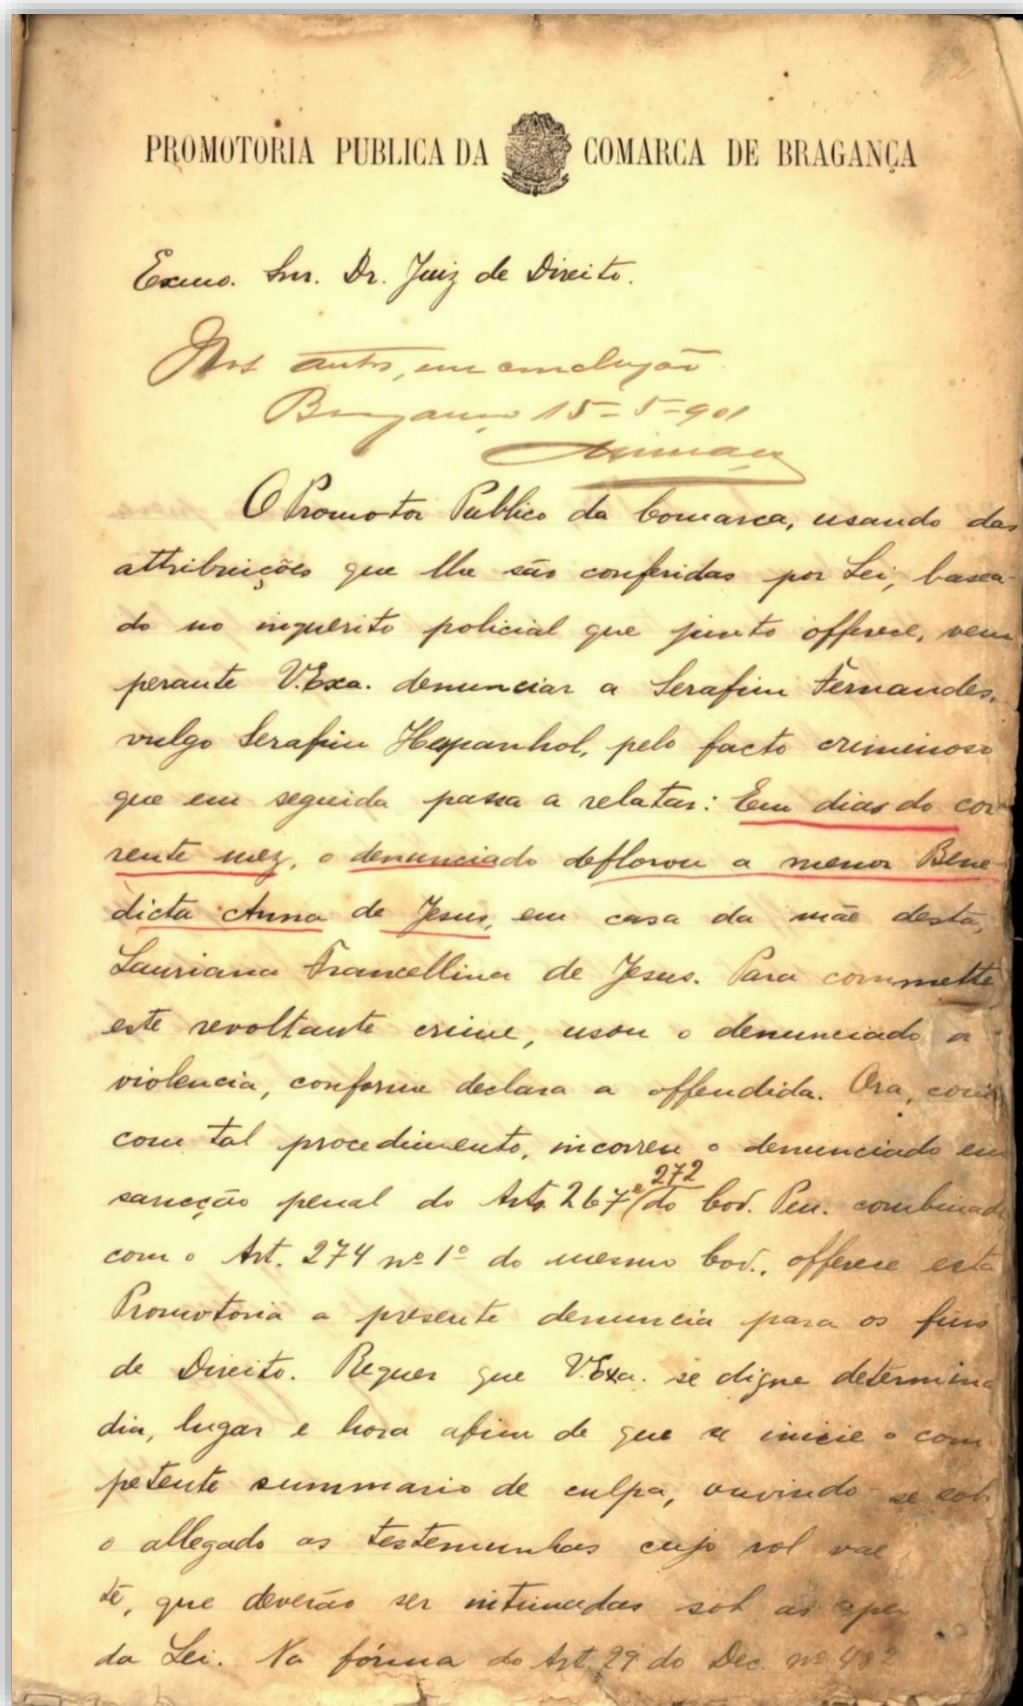 PROMOTORIA PUBLICA DA COMARCA DE BRAGANÇA
Exmo. Snr. Dr. Juiz de Direito.
autos, em conclusão
Bragança 15-5-901
O Promotor Publico da Comarca, usando das
attribuições que lhe são conferidas por Lei, basea-
do no inquerito policial que junto offerece, vem
perante V.Exa. denunciar a Serafim Fernandes,
vulgo Serafim Hespanhol, pelo facto criminoso
que em seguida passa a relatar: Em dias do cor-
rente mez, o denunciado deflorou a menor Bene-
dicta Anna de Jesus, em casa da mãe desta,
Lauriana Francellina de Jesus. Para commette
este revoltante crime, usou o denunciado a
violencia, conforme declara a offendida. Ora, como
com tal procedimento, incorreu o denunciado em
sancção penal do Arts. 267 e 272 do Cod. Pen. combinado
com o Art. 274 nº 1º do mesmo Cod., offerece esta
Promotoria a presente denuncia para os fins
de Direito. Requer que V.Exa. se digne determina
dia, lugar e hora afim de que se inicie o com
petente summario de culpa, ouvindo-se sob
o allegado as testemunhas cujo rol vae
te, que deverão ser intimadas sob as
da Lei. Na fórma do Art. 29 do Dec. nº 482